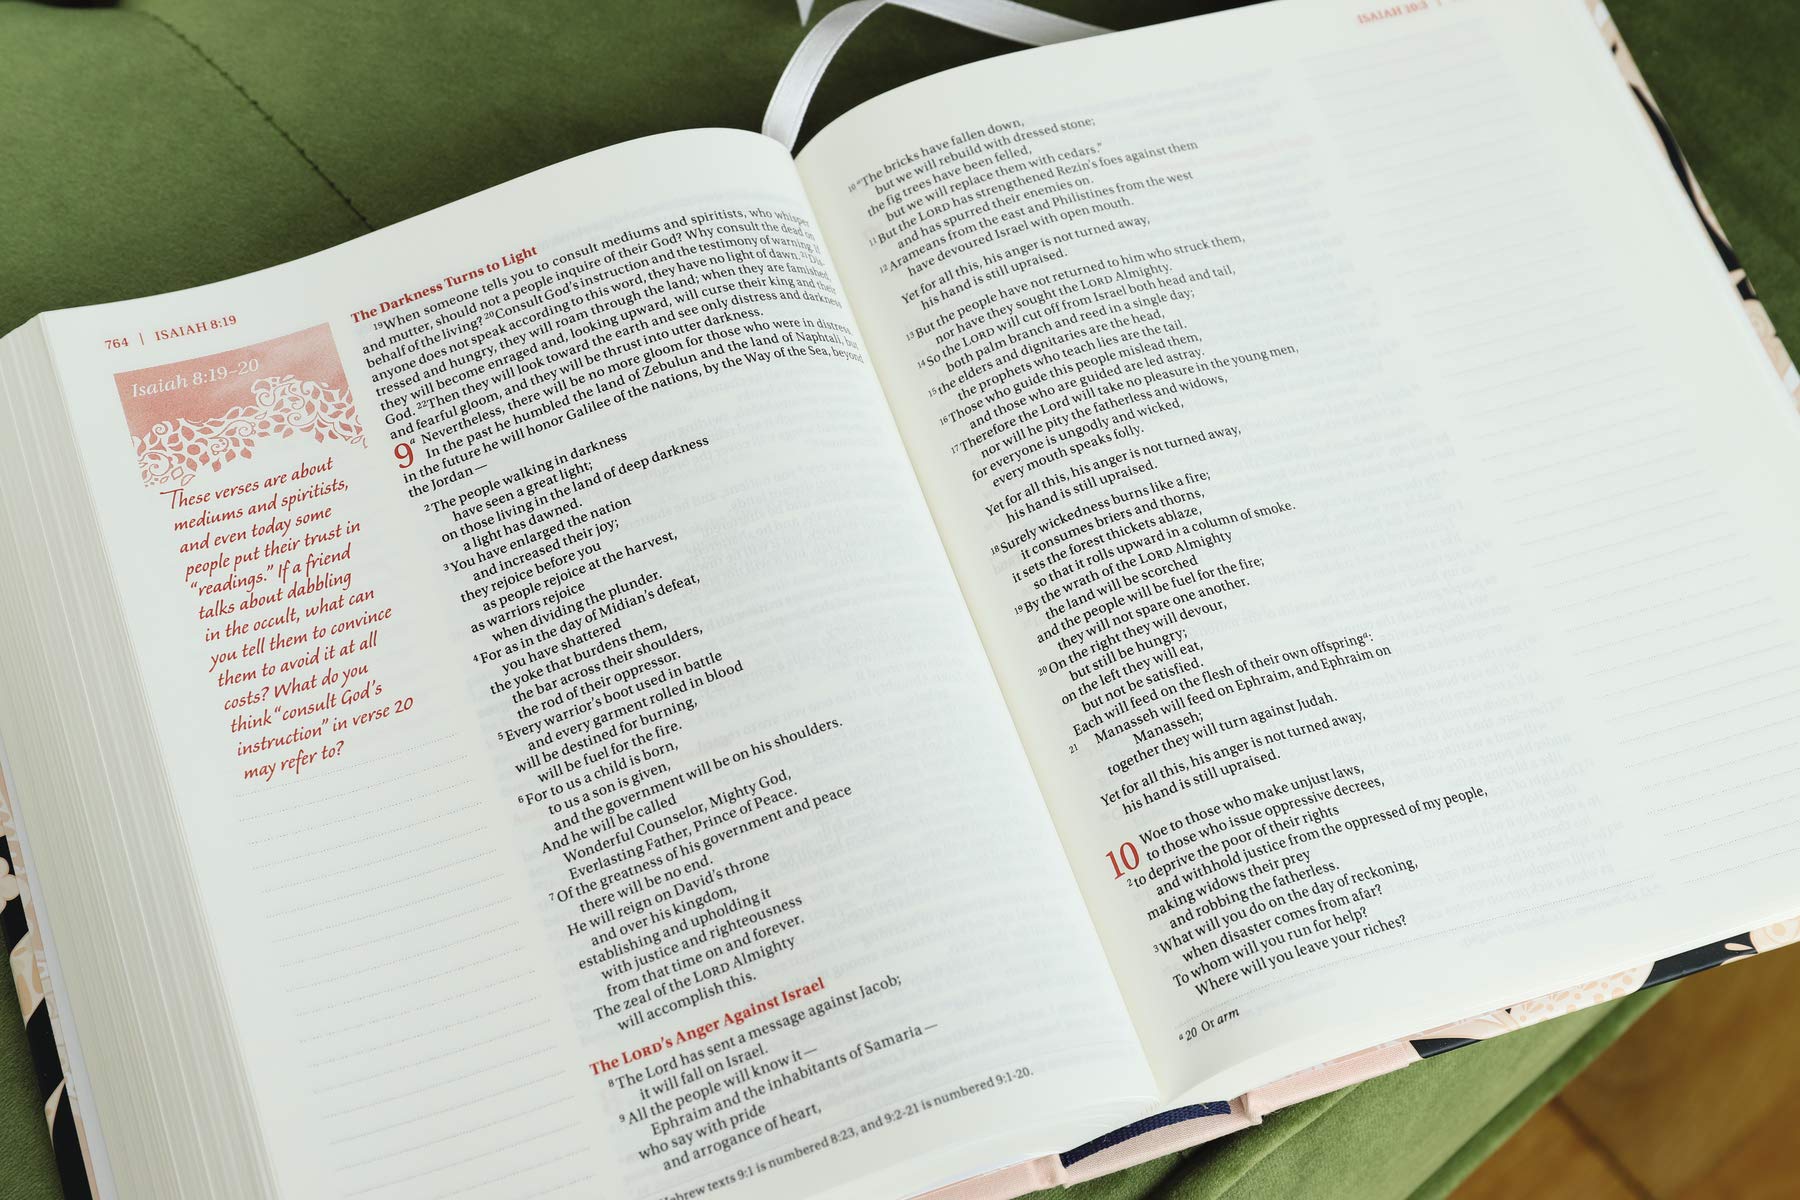 764 | ISAIAH 8:19
Isaiah 8:19–20
These verses are about
mediums and spiritists,
and even today some
people put their trust in
“readings.” If a friend
talks about dabbling
in the occult, what can
you tell them to convince
them to avoid it at all
costs? What do you
think “consult God’s
instruction” in verse 20
may refer to?
The Darkness Turns to Light
19When someone tells you to consult mediums and spiritists, who whisper
and mutter, should not a people inquire of their God? Why consult the dead on
behalf of the living? 20Consult God’s instruction and the testimony of warning. If
anyone does not speak according to this word, they have no light of dawn. 21Dis-
tressed and hungry, they will roam through the land; when they are famished,
they will become enraged and, looking upward, will curse their king and their
God. 22Then they will look toward the earth and see only distress and darkness
and fearful gloom, and they will be thrust into utter darkness.
9 a Nevertheless, there will be no more gloom for those who were in distress.
In the past he humbled the land of Zebulun and the land of Naphtali, but
in the future he will honor Galilee of the nations, by the Way of the Sea, beyond
the Jordan—
2The people walking in darkness
have seen a great light;
on those living in the land of deep darkness
a light has dawned.
3You have enlarged the nation
and increased their joy;
they rejoice before you
as people rejoice at the harvest,
as warriors rejoice
when dividing the plunder.
4For as in the day of Midian’s defeat,
you have shattered
the yoke that burdens them,
the bar across their shoulders,
the rod of their oppressor.
5Every warrior’s boot used in battle
and every garment rolled in blood
will be destined for burning,
will be fuel for the fire.
6For to us a child is born,
to us a son is given,
and the government will be on his shoulders.
And he will be called
Wonderful Counselor, Mighty God,
Everlasting Father, Prince of Peace.
7Of the greatness of his government and peace
there will be no end.
He will reign on David’s throne
and over his kingdom,
establishing and upholding it
with justice and righteousness
from that time on and forever.
The zeal of the LORD Almighty
will accomplish this.
The LORD’s Anger Against Israel
8The Lord has sent a message against Jacob;
it will fall on Israel.
9All the people will know it—
Ephraim and the inhabitants of Samaria—
who say with pride
and arrogance of heart,
texts 9:1 is numbered 8:23, and 9:2-21 is numbered 9:1-20.
ISAIAH 10:3 |
10“The bricks have fallen down,
but we will rebuild with dressed stone;
the fig trees have been felled,
but we will replace them with cedars.”
11But the LORD has strengthened Rezin’s foes against them
and has spurred their enemies on.
12Arameans from the east and Philistines from the west
have devoured Israel with open mouth.
Yet for all this, his anger is not turned away,
his hand is still upraised.
13But the people have not returned to him who struck them,
nor have they sought the LORD Almighty.
14So the LORD will cut off from Israel both head and tail,
both palm branch and reed in a single day;
15the elders and dignitaries are the head,
the prophets who teach lies are the tail.
16Those who guide this people mislead them,
and those who are guided are led astray.
17Therefore the Lord will take no pleasure in the young men,
nor will he pity the fatherless and widows,
for everyone is ungodly and wicked,
every mouth speaks folly.
Yet for all this, his anger is not turned away,
his hand is still upraised.
18Surely wickedness burns like a fire;
it consumes briers and thorns,
it sets the forest thickets ablaze,
so that it rolls upward in a column of smoke.
19By the wrath of the LORD Almighty
the land will be scorched
and the people will be fuel for the fire;
they will not spare one another.
20On the right they will devour,
but still be hungry;
on the left they will eat,
but not be satisfied.
Each will feed on the flesh of their own offspringa:
21 Manasseh will feed on Ephraim, and Ephraim on
Manasseh;
together they will turn against Judah.
Yet for all this, his anger is not turned away,
his hand is still upraised.
10 Woe to those who make unjust laws,
to those who issue oppressive decrees,
2to deprive the poor of their rights
and withhold justice from the oppressed of my people,
making widows their prey
and robbing the fatherless.
3What will you do on the day of reckoning,
when disaster comes from afar?
To whom will you run for help?
Where will you leave your riches?
a 20 Or arm